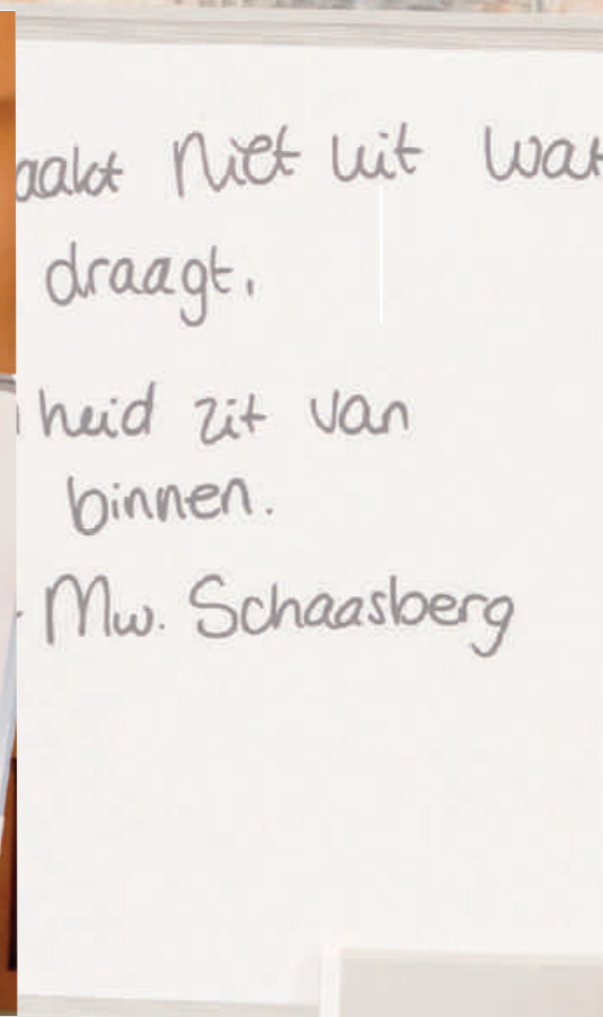 aakt niet uit wat
draagt.
heid zit van
binnen.
- Mw. Schaasberg